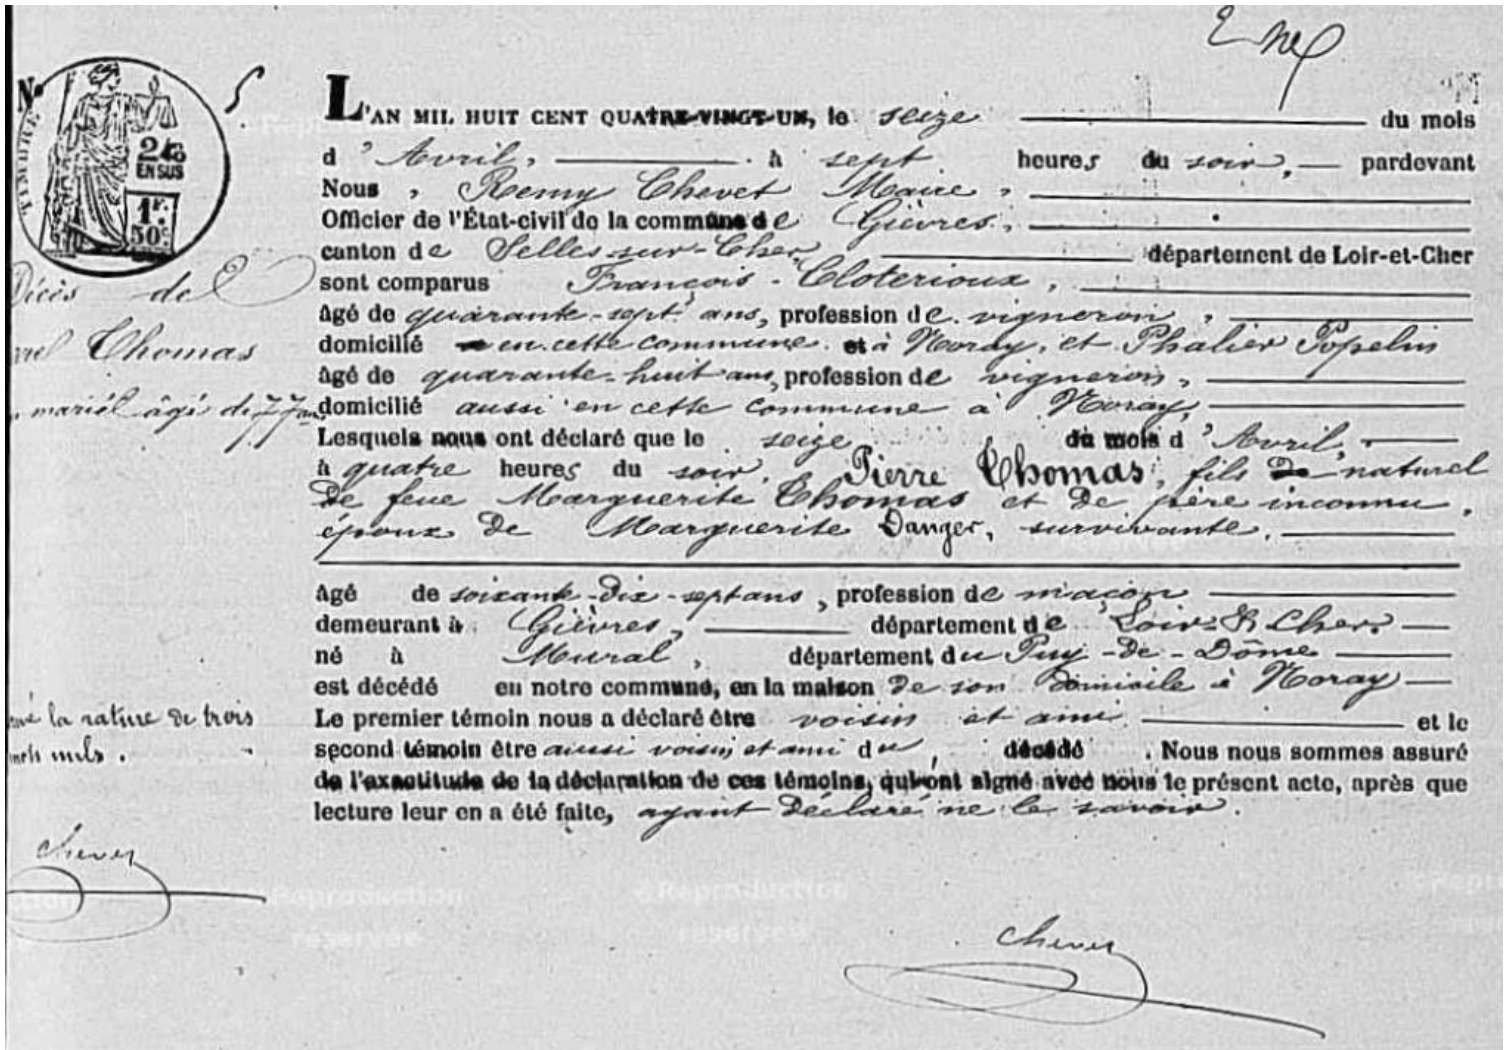 No 5
TIMBRE
2/10
EN SUS
1F.
50c
L'AN MIL HUIT CENT QUATRE-VINGT-UN, le seize du mois
d'Avril, à sept heures du soir, pardevant
Nous, Remy Chevet Maire,
Officier de l'État-civil de la commune de Gièvres,
canton de Selles-sur-Cher département de Loir-et-Cher
sont comparus François Cloterioux,
âgé de quarante-sept ans, profession de vigneron,
domicilié en cette commune et à Noray, et Phalier Popelin
âgé de quarante-huit ans, profession de vigneron,
domicilié aussi en cette commune à Noray,
Lesquels nous ont déclaré que le seize du mois d'Avril,
à quatre heures du soir, Pierre Thomas, fils de naturel
de feue Marguerite Thomas et de père inconnu,
époux de Marguerite Danger, survivante,
âgé de soixante-dix-sept ans, profession de maçon
demeurant à Gièvres, département de Loir & Cher
né à Mural, département du Puy-de-Dôme
est décédé en notre commune, en la maison de son domicile à Noray
Le premier témoin nous a déclaré être voisin et ami et le
second témoin être aussi voisin et ami du décédé. Nous nous sommes assuré
de l'exactitude de la déclaration de ces témoins, qui ont signé avec nous le présent acte, après que
lecture leur en a été faite, ayant déclaré ne le savoir.
Chevet
Décès de
Thomas
marié âgé de 77 ans
la rature de trois
mots nuls.
Chevet
©Reproduction
réservée
©Reproduction
réservée